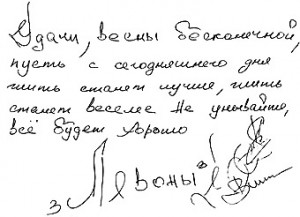 Удачи, весны бесконечной,
пусть с сегодняшнего дня
жить станет лучше, жить
станет веселее Не унывайте,
всё будет хорошо